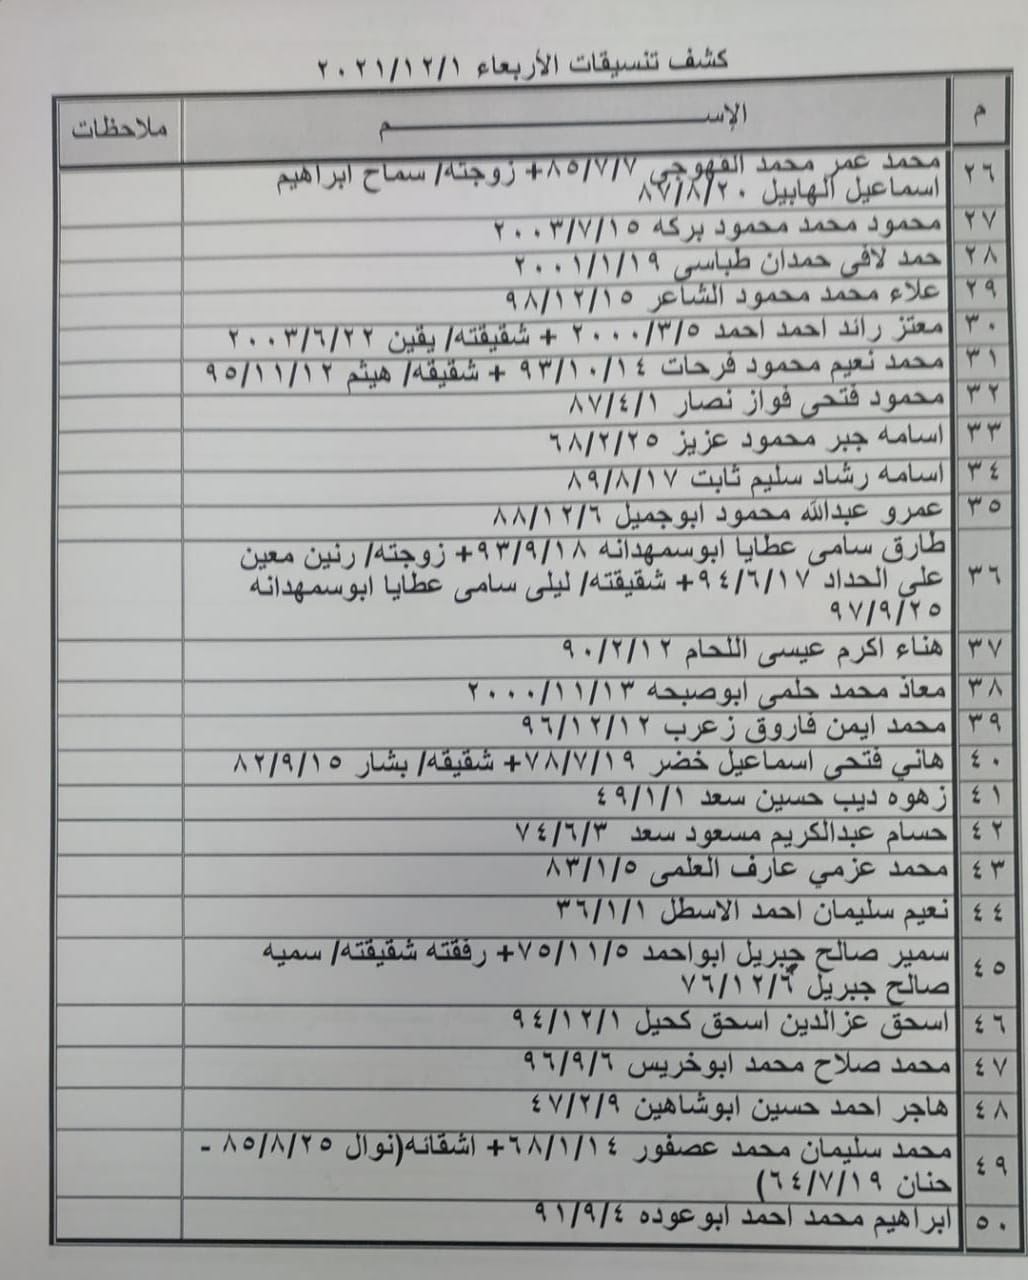 كشف تنسيقات الأربعاء ٢٠٢١/١٢/١
م الإســـــــــــــم ملاحظات
٢٦ محمد عمر محمد القهوجي ٨٥/٧/٧+ زوجته/ سماح ابراهيم
اسماعيل الهابيل ٨٧/٨/٢٠
٢٧ محمود محمد محمود بركه ٢٠٠٣/٧/١٥
٢٨ حمد لافى حمدان طباسى ٢٠٠١/١/١٩
٢٩ علاء محمد محمود الشاعر ٩٨/١٢/١٥
٣٠ معتز رائد احمد احمد ٢٠٠٠/٣/٥ + شقيقته/ يقين ٢٠٠٣/٦/٢٢
٣١ محمد نعيم محمود فرحات ٩٣/١٠/١٤ + شقيقه/ هيثم ٩٥/١١/١٢
٣٢ محمود فتحى فواز نصار ٨٧/٤/١
٣٣ اسامه جبر محمود عزيز ٦٨/٢/٢٥
٣٤ اسامه رشاد سليم ثابت ٨٩/٨/١٧
٣٥ عمرو عبدالله محمود ابوجميل ٨٨/١٢/٦
طارق سامى عطايا ابوسمهدانه ٩٣/٩/١٨+ زوجته/ رنين معين
٣٦ على الحداد ٩٤/٦/١٧+ شقيقته/ ليلى سامى عطايا ابوسمهدانه
٩٧/٩/٢٥
٣٧ هناء اكرم عيسى اللحام ٩٠/٢/١٢
٣٨ معاذ محمد حلمى ابوصبحه ٢٠٠٠/١١/١٣
٣٩ محمد ايمن فاروق زعرب ٩٦/١٢/١٢
٤٠ هاني فتحى اسماعيل خضر ٧٨/٧/١٩+ شقيقه/ بشار ٨٢/٩/١٥
٤١ زهوه ديب حسين سعد ٤٩/١/١
٤٢ حسام عبدالكريم مسعود سعد ٧٤/٦/٣
٤٣ محمد عزمي عارف العلمى ٨٣/١/٥
٤٤ نعيم سليمان احمد الاسطل ٣٦/١/١
٤٥ سمير صالح جبريل ابواحمد ٧٥/١١/٥+ رفقته شقيقته/ سميه
صالح جبريل ٧٦/١٢/٦
٤٦ اسحق عزالدين اسحق كحيل ٩٤/١٢/١
٤٧ محمد صلاح محمد ابوخريس ٩٦/٩/٦
٤٨ هاجر احمد حسين ابوشاهين ٤٧/٢/٩
٤٩ محمد سليمان محمد عصفور ٦٨/١/١٤+ اشقائه(نوال ٨٥/٨/٢٥ -
حنان ٦٤/٧/١٩)
٥٠ ابراهيم محمد احمد ابوعوده ٩١/٩/٤